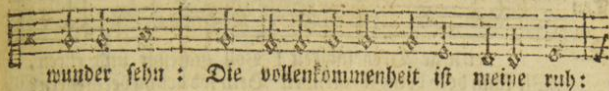 wunder sehn : Die vollenkommenheit ist meine ruh: